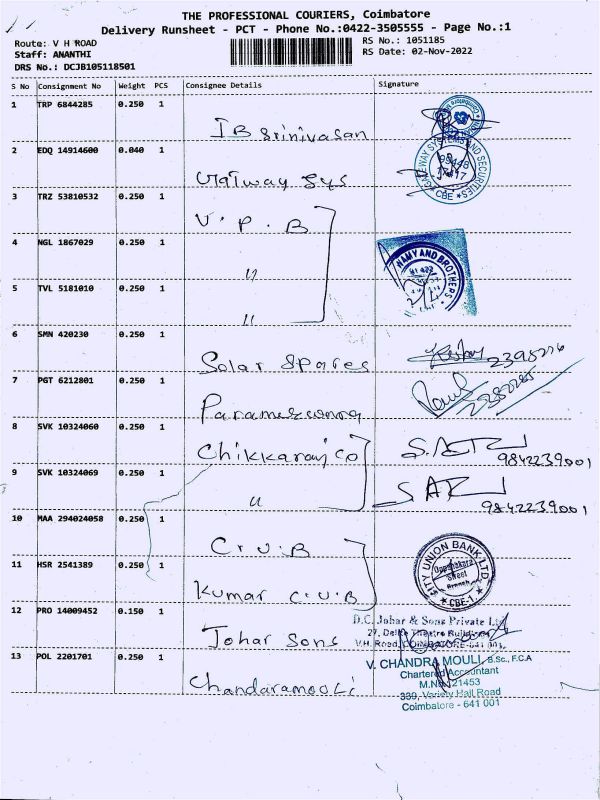 THE PROFESSIONAL COURIERS, Coimbatore
Delivery Runsheet - PCT - Phone No.:0422-3505555 - Page No.:1
Route: V H ROAD
Staff: ANANTHI
DRS No.: DCJB105118501
RS No.: 1051185
RS Date: 02-Nov-2022
S No Consignment No Weight PCS Consignee Details Signature
1 TRP 6844285 0.250 1
IB Srinivasan
2 EDQ 14914600 0.040 1
GATEWAY SYSTEMS AND SECURITIES
* CBE *
3 TRZ 53810532 0.250 1
V. P. B
4 NGL 1867029 0.250 1
"
AND BROTHERS
5 TVL 5181010 0.250 1
"
6 SMN 420230 0.250 1
Solar Spares
7 PGT 6212801 0.250 1
8 SVK 10324060 0.250 1
Chikkaraj Co
9842239001
9 SVK 10324069 0.250 1
"
9842239001
10 MAA 294024058 0.250 1
C. U. B
CITY UNION BANK LTD.
Street
Branch
* CBE-1 *
11 HSR 2541389 0.250 1
Kumar C.U.B
12 PRO 14009452 0.150 1
Johar Sons
D.C. Johar & Sons Private Ltd
27, Delite Theatre Buildings
V.H. Road, COIMBATORE-641 001.
13 POL 2201701 0.250 1
Chandaramooli
V. CHANDRA MOULI, B.Sc., F.C.A
Chartered Accountant
M.No. 21453
339, Variety Hall Road
Coimbatore - 641 001